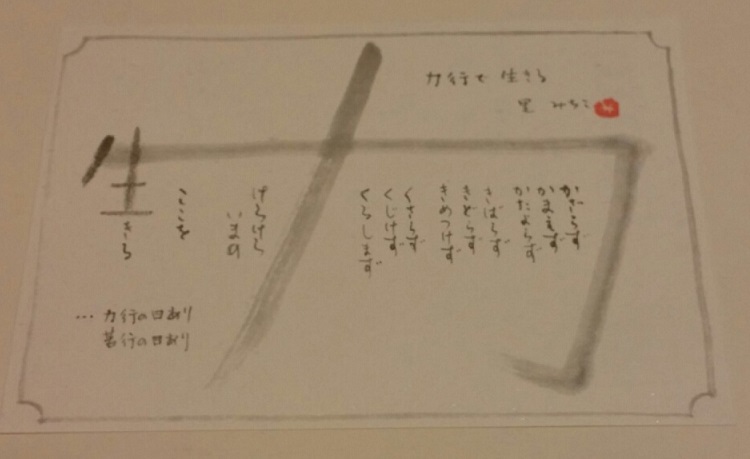 カ
カ行で 生きる
里 みちこ
かざらず
かまえず
かたよらず
きばらず
きどらず
きめつけず
くさらず
くじけず
くらします
けらけら
いまの
ここを
生きる
… カ行の日あり
苦行の日あり